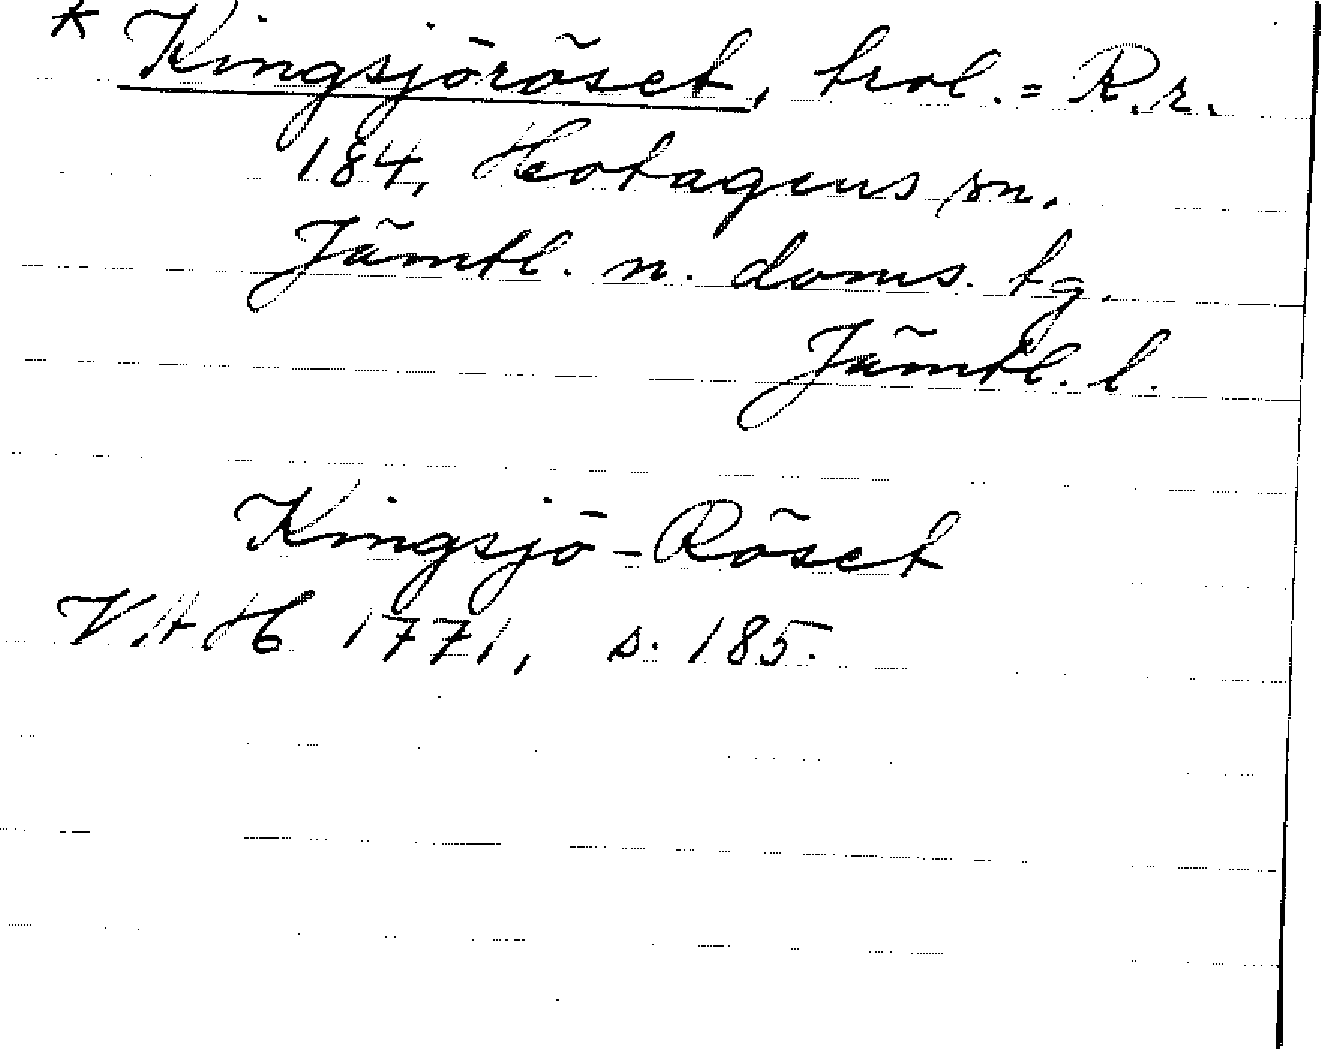 * Kingsjöröset, trol. = R.r.
184, Hotagens sn.
Jämtl. n. doms. tg.
Jämtl. l.
Kingsjö-Röset
VAH 1771, s. 185.